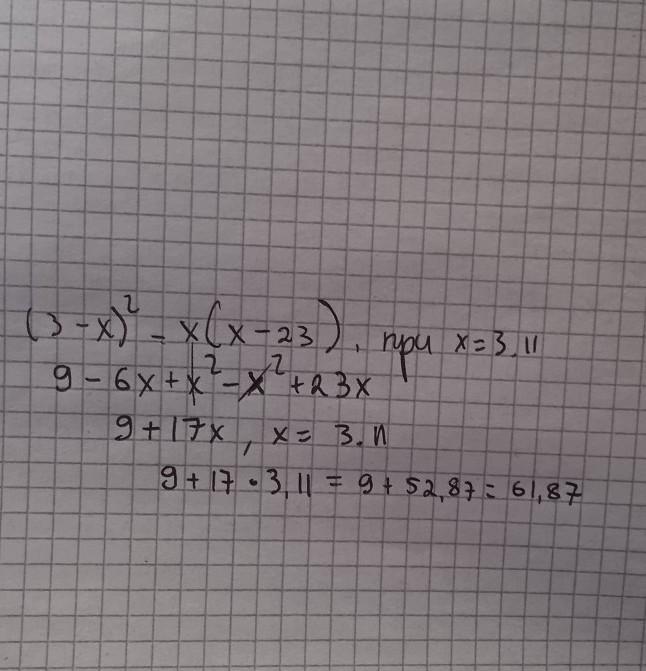 (3-x)² - x(x-23), при x=3.11
9-6x+x²-x²+23x
9+17x, x=3.11
9+17·3,11=9+52,87=61,87